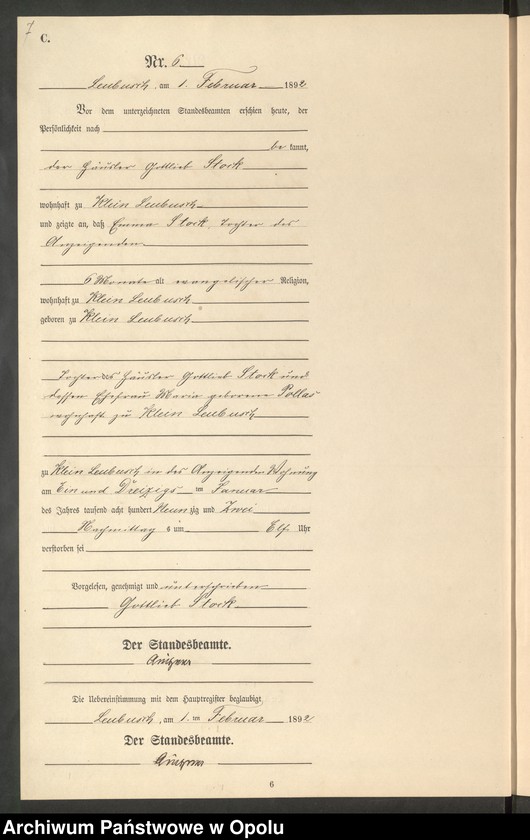 7
C.
Nr. 6
Leubusch, am 1. Februar 1892
Vor dem unterzeichneten Standesbeamten erschien heute, der
Persönlichkeit nach
bekannt,
der Häusler Gottlieb Stork
wohnhaft zu Klein Leubusch
und zeigte an, daß Emma Stork, Tochter des
Anzeigenden
6 Monate alt evangelischer Religion,
wohnhaft zu Klein Leubusch
geboren zu Klein Leubusch
Tochter des Häusler Gottlieb Stork und
dessen Ehefrau Maria geborene Pollas
wohnhaft zu Klein Leubusch
zu Klein Leubusch in des Anzeigenden Wohnung
am Ein und Dreizigs ten Januar
des Jahres tausend acht hundert Neunzig und Zwei
Nachmittags um Elf Uhr
verstorben sei
Vorgelesen, genehmigt und unterschrieben
Gottlieb Stork
Der Standesbeamte.
Die Uebereinstimmung mit dem Hauptregister beglaubigt
Leubusch, am 1. ten Februar 1892
Der Standesbeamte.
6
Archiwum Państwowe w Opolu